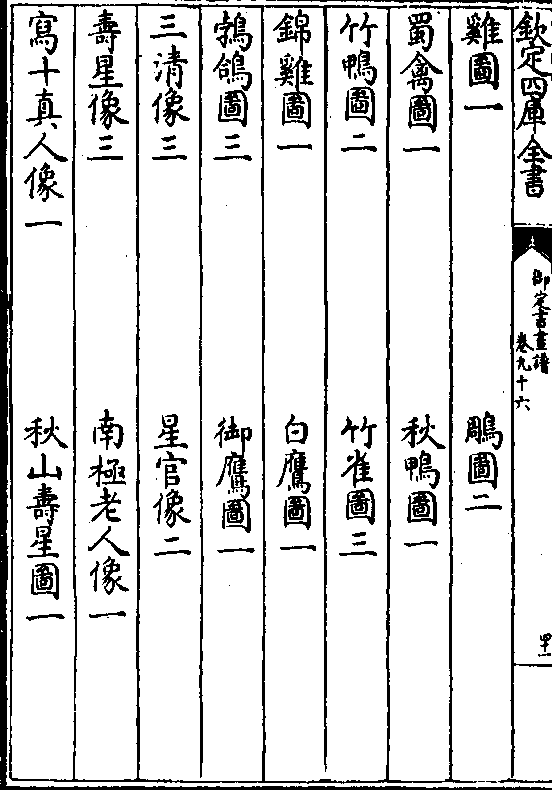 欽定四庫全書
御定書畫譜
卷九十六
雞圖一　鵰圖二
蜀禽圖一　秋鴨圖一
竹鴨圖二　竹雀圖三
錦雞圖一　白鷹圖一
鵓鴿圖三　御鷹圖一
三清像三　星官像二
壽星像三　南極老人像一
寫十真人像一　秋山壽星圖一